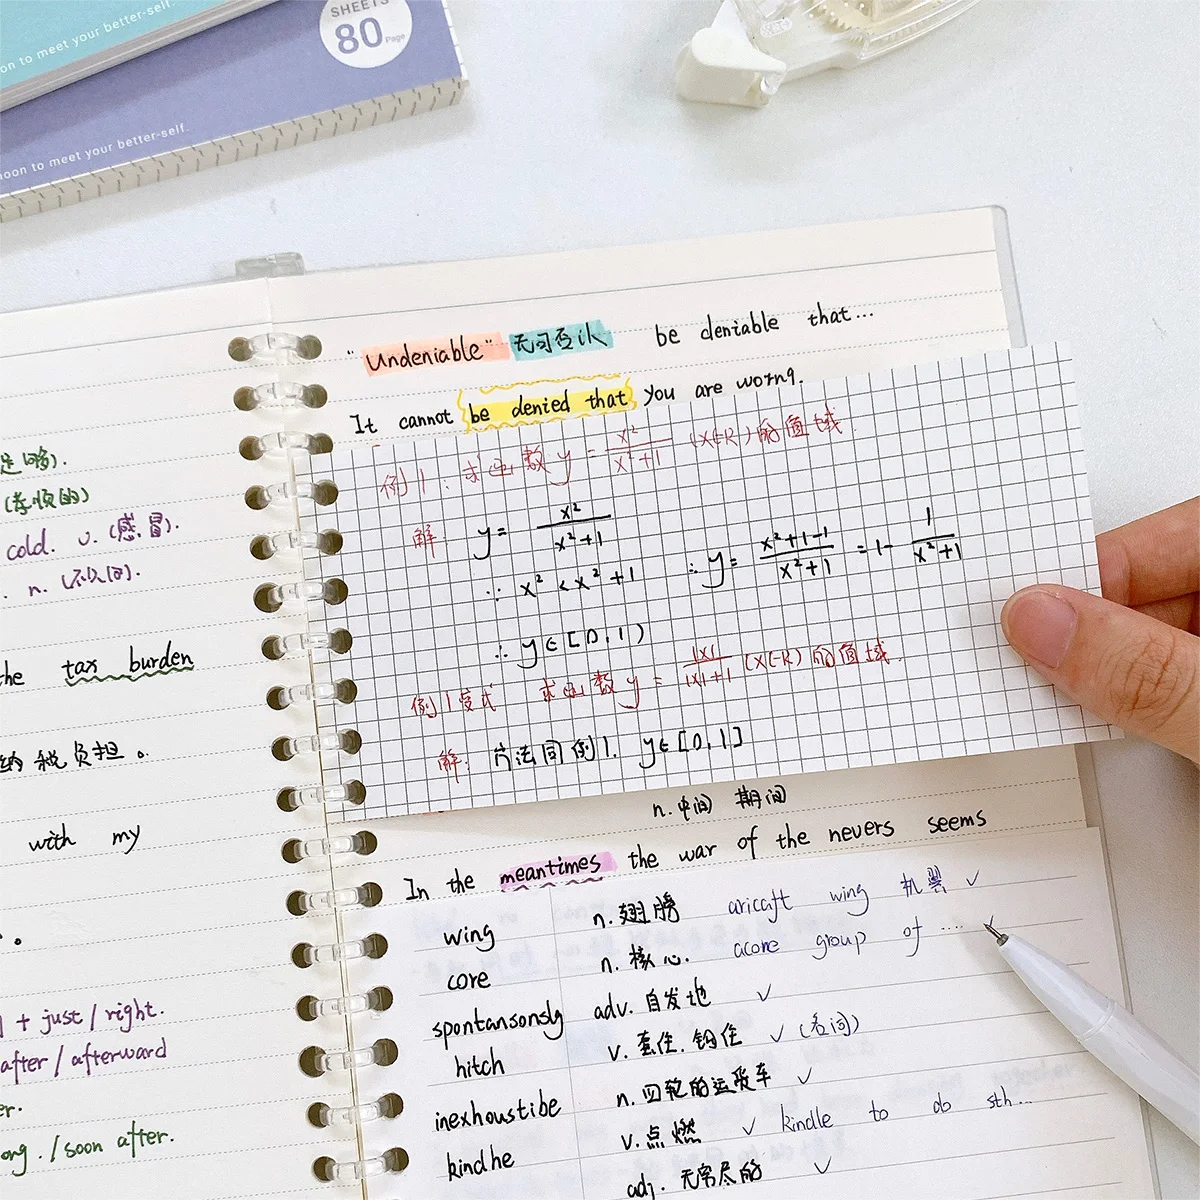 SHEETS
80 Page
on to meet your better-self.
moon to meet your better-self.
"Undeniable" 无可否认 be deniable that...
It cannot be denied that you are worng.
例1: 求函数 y = x²/x²+1 (x∈R) 的值域
解: y = x²/x²+1 ∴ y = x²+1-1/x²+1 = 1 - 1/x²+1
∵ x² < x²+1
∴ y∈[0,1)
例1变式 求函数 y = |x|/|x|+1 (x∈R) 的值域
解: 方法同例1. y∈[0,1]
n.中间 期间
In the meantimes the war of the nevers seems
wing n.翅膀 aricaft wing 机翼 ✓
core n.核心. acore group of ....
spontansonsly adv.自发地 ✓
hitch v. 钩住 ✓ (名词)
inexhoustibe n.四轮的运货车 ✓
kindhe v.点燃 ✓ kindle to do sth...
adj.无穷尽的 ✓
足够).
(孝顺的)
cold. v. (感冒).
n. (不久间).
the tax burden
纳税负担。
with my
+ just/right.
after/afterward
er.
ong./soon after.